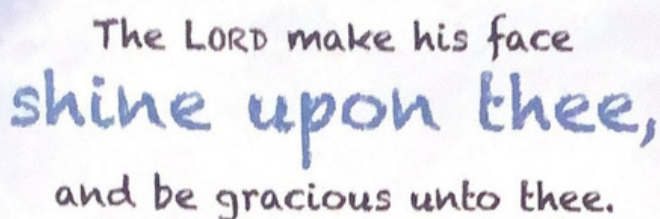 The LORD make his face
shine upon thee,
and be gracious unto thee.